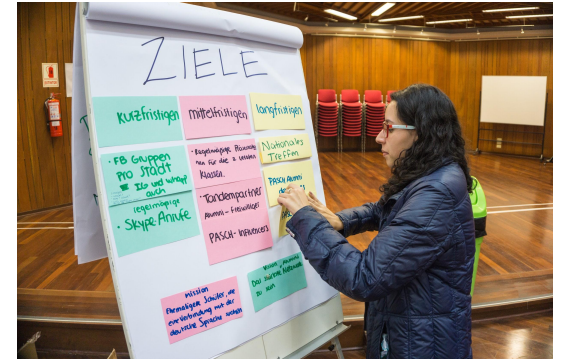 ZIELE
kurzfristigen
mittelfristigen
langfristigen
• FB Gruppen
pro Stadt
IG und whapp
auch
regelmäßige
• Skype-Anrufe
• Regelmäßige
für die 2 ersten
Klassen.
• Tandempartner
Alumni - Freiwilliger
PASCH-Influencers
Nationales
Treffen
PASCH Alumni
mission
Ehemaligen Schüler, die
eine Verbindung mit der
deutsche Sprache
Vision
Das Netzwerk
zu sein